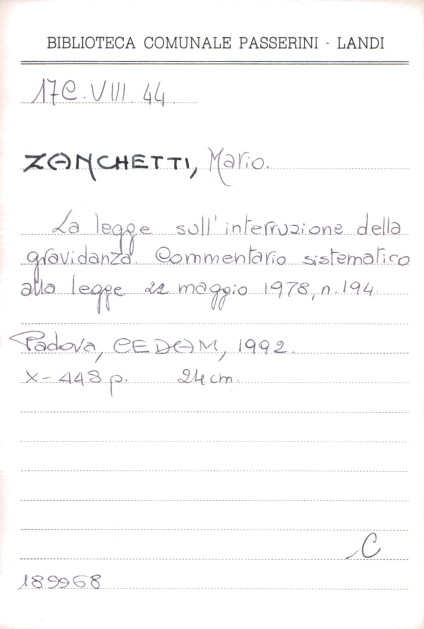 BIBLIOTECA COMUNALE PASSERINI - LANDI
17C.VIII.44
ZANCHETTI, Mario.
La legge sull'interruzione della
gravidanza. Commentario sistematico
alla legge 22 maggio 1978, n. 194
Padova, CEDAM, 1992.
X-448 p. 24 cm.
C
189968